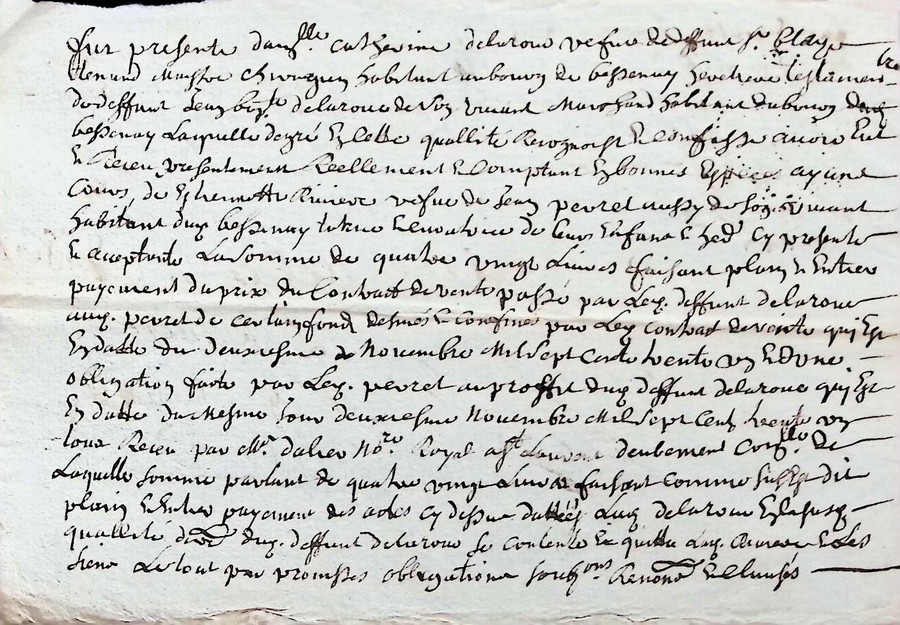 fut presente dam^lle Catherine delaroue vefue de deffunt S^r Blaye
Renaud Maistre Chirurgien habitant au bourg de bessenay heretiere testamen^tre
de deffunt Jean bap^te delaroue de son vivant Marchand habitant du bourg dud
bessenay Laquelle de gré En cette quallité Recognoist Et Confesse avoir Eut
Et Receu presentement Reellement Et Comptant En bonnes Espéces ayant
Cours de Estiennette Riviere vefue de Jean peyret aussy de son vivant
habitant dud bessenay tutrice Et Curatrice de Leurs Enfans Et hed^s Cy presente
Et acceptante La Somme de quatre vingt Livres faisant plain Et Entier
payement du prix du Contract de vente passé par Led. deffunt delaroue
aud. peyret de certains fonds desinés Et Confinés par Led contract de vente qui Est
En datte du deuxiesme de Novembre Mil Sept Cents trente un Et d'une
obligation faite par Led. peyret au proffit dud deffunt delaroue qui Est
En datte du Mesme Jour deuxiesme Novembre Mil Sept Cents trente un
tous Receu par M^e. dalier No^re Royal a S^t Laurent de
Laquelle Somme partant de quatre vingt Livres faisant Comme sus Est dit
plain Et Entier payement des actes Cy dessus dattées Lad delaroue En
quallité dud. deffunt delaroue Se Contente Et quitte Lad. Riviere Et Les
Siens Le tout par promesses obligations Et Clauses